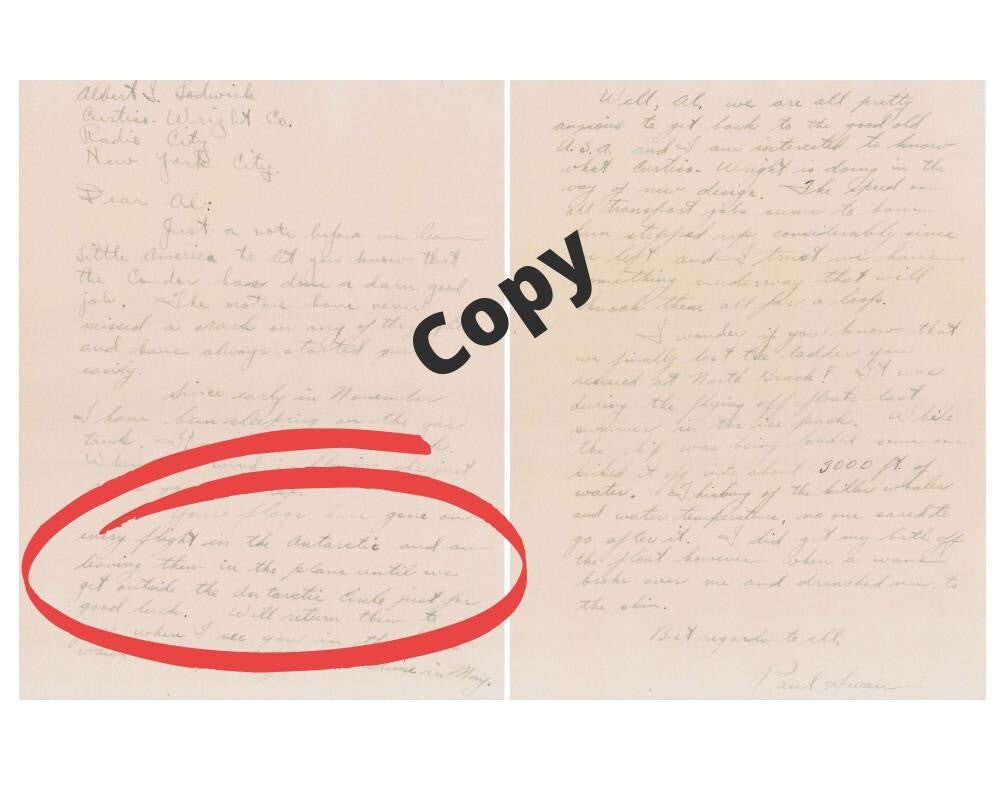 Albert I. Lodwick
Curtiss-Wright Co.
Radio City
New York City.
Dear Al:
Just a note before we leave
Little America to let you know that
the Condor has done a darn good
job. The motors have never
missed a crack on any of the
and have always started
easily.
Since early in November
I have been sleeping on the gas
tank. It
When wind is blowing she just
Your flags have gone on
every flight in the Antarctic and am
leaving them in the plane until we
get outside the Antarctic Circle just for
good luck. Will return them to
you when I see you in the
in May.
Well, Al, we are all pretty
anxious to get back to the good old
U.S.A. and I am interested to know
what Curtiss-Wright is doing in the
way of new design. The speed on
all transport jobs seems to have
been stepped up considerably since
we left and I trust we have
something underway that will
knock them all for a loop.
I wonder if you know that
we finally lost the ladder you
rescued at North Beach? It was
during the flying off floats last
summer in the ice pack. While
the ship was being loaded some one
kicked it off into about 3000 ft. of
water. Thinking of the killer whales
and water temperature, no one cared to
go after it. I did get my bath off
the float however when a wave
broke over me and drenched me to
the skin.
Best regards to all,
Paul Swan
Copy